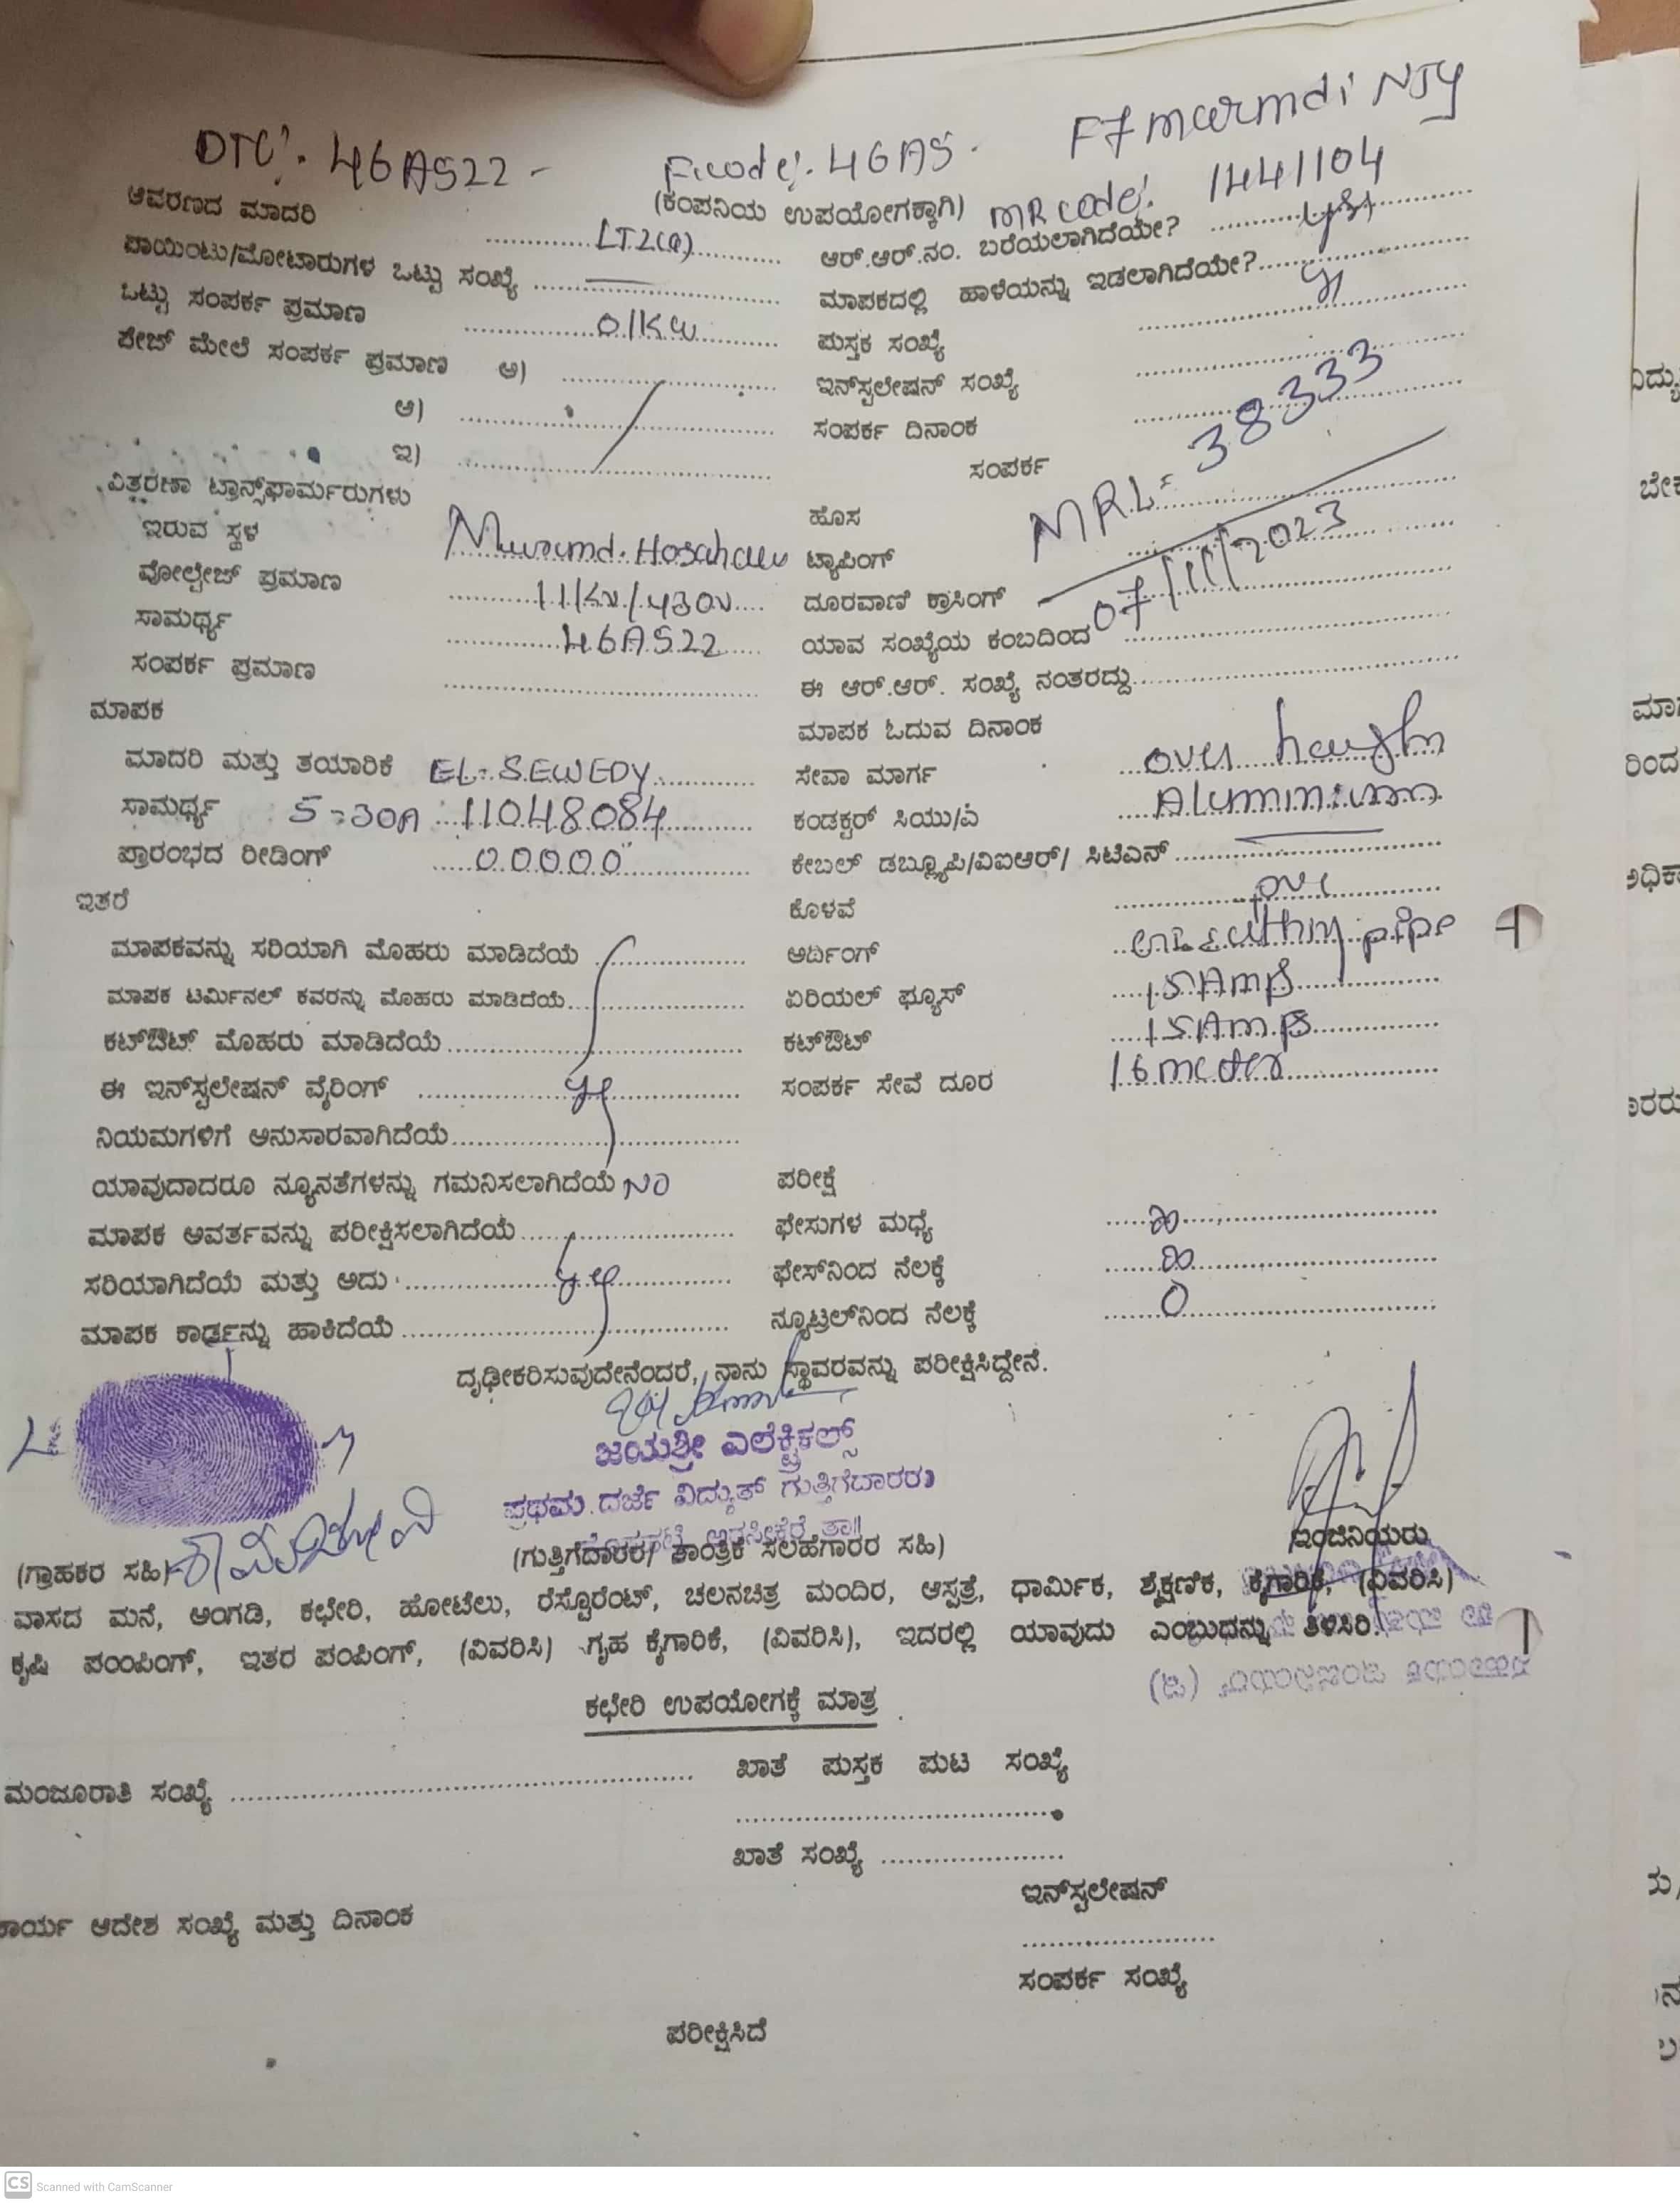 DTC: 46AS22 -
Fcode: 46AS.
F7 marmdi NJY
(ಕಂಪನಿಯ ಉಪಯೋಗಕ್ಕಾಗಿ)
MR code: 1441104
ಆವರಣದ ಮಾದರಿ LT2(a)
ಪಾಯಿಂಟು/ಮೋಟಾರುಗಳ ಒಟ್ಟು ಸಂಖ್ಯೆ
ಒಟ್ಟು ಸಂಪರ್ಕ ಪ್ರಮಾಣ 01KW
ಪೇಜ್ ಮೇಲೆ ಸಂಪರ್ಕ ಪ್ರಮಾಣ ಅ)
ಆ)
ಇ)
ವಿತ್ತರಣಾ ಟ್ರಾನ್ಸ್‌ಫಾರ್ಮರುಗಳು
ಇರುವ ಸ್ಥಳ
ವೋಲ್ಟೇಜ್ ಪ್ರಮಾಣ 11KV/430V
ಸಾಮರ್ಥ್ಯ 46AS22
ಸಂಪರ್ಕ ಪ್ರಮಾಣ
ಮಾಪಕ
ಮಾದರಿ ಮತ್ತು ತಯಾರಿಕೆ EL-SEWEDY
ಸಾಮರ್ಥ್ಯ 5-30A 11048084
ಪ್ರಾರಂಭದ ರೀಡಿಂಗ್ 00000
ಇತರೆ
ಮಾಪಕವನ್ನು ಸರಿಯಾಗಿ ಮೊಹರು ಮಾಡಿದೆಯೆ
ಮಾಪಕ ಟರ್ಮಿನಲ್ ಕವರನ್ನು ಮೊಹರು ಮಾಡಿದೆಯೆ
ಕಟ್‌ಔಟ್ ಮೊಹರು ಮಾಡಿದೆಯೆ
ಈ ಇನ್‌ಸ್ಟಲೇಷನ್ ವೈರಿಂಗ್
ನಿಯಮಗಳಿಗೆ ಅನುಸಾರವಾಗಿದೆಯೆ
ಯಾವುದಾದರೂ ನ್ಯೂನತೆಗಳನ್ನು ಗಮನಿಸಲಾಗಿದೆಯೆ NO
ಮಾಪಕ ಆವರ್ತವನ್ನು ಪರೀಕ್ಷಿಸಲಾಗಿದೆಯೆ
ಸರಿಯಾಗಿದೆಯೆ ಮತ್ತು ಅದು
ಮಾಪಕ ಕಾರ್ಡನ್ನು ಹಾಕಿದೆಯೆ
ಆರ್.ಆರ್.ನಂ. ಬರೆಯಲಾಗಿದೆಯೇ?
ಮಾಪಕದಲ್ಲಿ ಹಾಳೆಯನ್ನು ಇಡಲಾಗಿದೆಯೇ?
ಪುಸ್ತಕ ಸಂಖ್ಯೆ
ಇನ್‌ಸ್ಟಲೇಷನ್ ಸಂಖ್ಯೆ
ಸಂಪರ್ಕ ದಿನಾಂಕ
ಸಂಪರ್ಕ
MRL= 38333
ಹೊಸ
ಟ್ಯಾಪಿಂಗ್
07/11/2023
ದೂರವಾಣಿ ಕ್ರಾಸಿಂಗ್
ಯಾವ ಸಂಖ್ಯೆಯ ಕಂಬದಿಂದ
ಈ ಆರ್.ಆರ್. ಸಂಖ್ಯೆ ನಂತರದ್ದು
ಮಾಪಕ ಓದುವ ದಿನಾಂಕ
ಸೇವಾ ಮಾರ್ಗ over
ಕಂಡಕ್ಟರ್ ಸಿಯು/ಎ Aluminium
ಕೇಬಲ್ ಡಬ್ಲ್ಯೂಪಿ/ವಿಐಆರ್/ ಸಿಟಿಎಸ್
ಕೊಳವೆ
ಅರ್ದಿಂಗ್ pipe
ಏರಿಯಲ್ ಫ್ಯೂಸ್ 15Amps
ಕಟ್‌ಔಟ್ 15Amps
ಸಂಪರ್ಕ ಸೇವೆ ದೂರ 16 meter
ಪರೀಕ್ಷೆ
ಫೇಸುಗಳ ಮಧ್ಯೆ ∞
ಫೇಸ್‌ನಿಂದ ನೆಲಕ್ಕೆ ∞
ನ್ಯೂಟ್ರಲ್‌ನಿಂದ ನೆಲಕ್ಕೆ 0
ದೃಢೀಕರಿಸುವುದೇನೆಂದರೆ, ನಾನು ಸ್ಥಾವರವನ್ನು ಪರೀಕ್ಷಿಸಿದ್ದೇನೆ.
ಜಯಶ್ರೀ ಎಲೆಕ್ಟ್ರಿಕಲ್ಸ್
ಪ್ರಥಮ ದರ್ಜೆ ವಿದ್ಯುತ್ ಗುತ್ತಿಗೆದಾರರು
ಅರಸೀಕೆರೆ ತಾ||
(ಗ್ರಾಹಕರ ಸಹಿ)
(ಗುತ್ತಿಗೆದಾರರ/ ತಾಂತ್ರಿಕ ಸಲಹೆಗಾರರ ಸಹಿ)
ಇಂಜಿನಿಯರು
ವಾಸದ ಮನೆ, ಅಂಗಡಿ, ಕಛೇರಿ, ಹೋಟೆಲು, ರೆಸ್ಟೊರೆಂಟ್, ಚಲನಚಿತ್ರ ಮಂದಿರ, ಆಸ್ಪತ್ರೆ, ಧಾರ್ಮಿಕ, ಶೈಕ್ಷಣಿಕ, ಕೈಗಾರಿಕೆ, (ವಿವರಿಸಿ)
ಕೃಷಿ ಪಂಂಪಿಂಗ್, ಇತರ ಪಂಪಿಂಗ್, (ವಿವರಿಸಿ) ಗೃಹ ಕೈಗಾರಿಕೆ, (ವಿವರಿಸಿ), ಇದರಲ್ಲಿ ಯಾವುದು ಎಂಬುಧನ್ನು ತಿಳಿಸಿರಿ.
ಕಛೇರಿ ಉಪಯೋಗಕ್ಕೆ ಮಾತ್ರ
ಮಂಜೂರಾತಿ ಸಂಖ್ಯೆ
ಖಾತೆ ಪುಸ್ತಕ ಪುಟ ಸಂಖ್ಯೆ
ಖಾತೆ ಸಂಖ್ಯೆ
ಇನ್‌ಸ್ಟಲೇಷನ್
ಕಾರ್ಯ ಆದೇಶ ಸಂಖ್ಯೆ ಮತ್ತು ದಿನಾಂಕ
ಸಂಪರ್ಕ ಸಂಖ್ಯೆ
ಪರೀಕ್ಷಿಸಿದೆ
CS Scanned with CamScanner